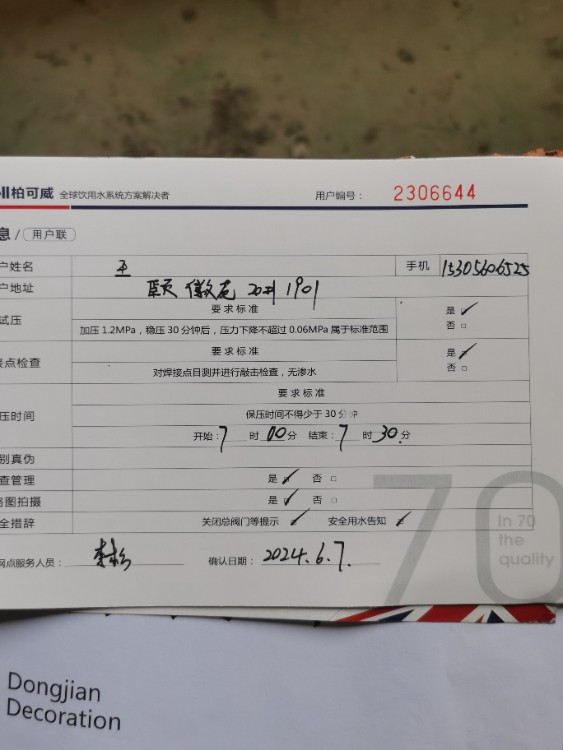 ll柏可威 全球饮用水系统方案解决者 用户编号： 2306644
息 / 用户联
户姓名 手机 15305606525
户地址 20 1901
试压 要求标准 是 ✓
加压1.2MPa，稳压30分钟后，压力下降不超过0.06MPa属于标准范围 否 □
接点检查 要求标准 是 ✓
对焊接点目测并进行敲击检查，无渗水 否 □
压时间 要求标准
保压时间不得少于30分钟
开始：7 时 00 分 结束：7 时 30 分
别真伪
查管理 是 ✓ 否 □
路图拍摄 是 ✓ 否 □
全措辞 关闭总阀门等提示 ✓ 安全用水告知 ✓
网点服务人员： 确认日期： 2024.6.7.
70
In 70
the
quality
Dongjian
Decoration